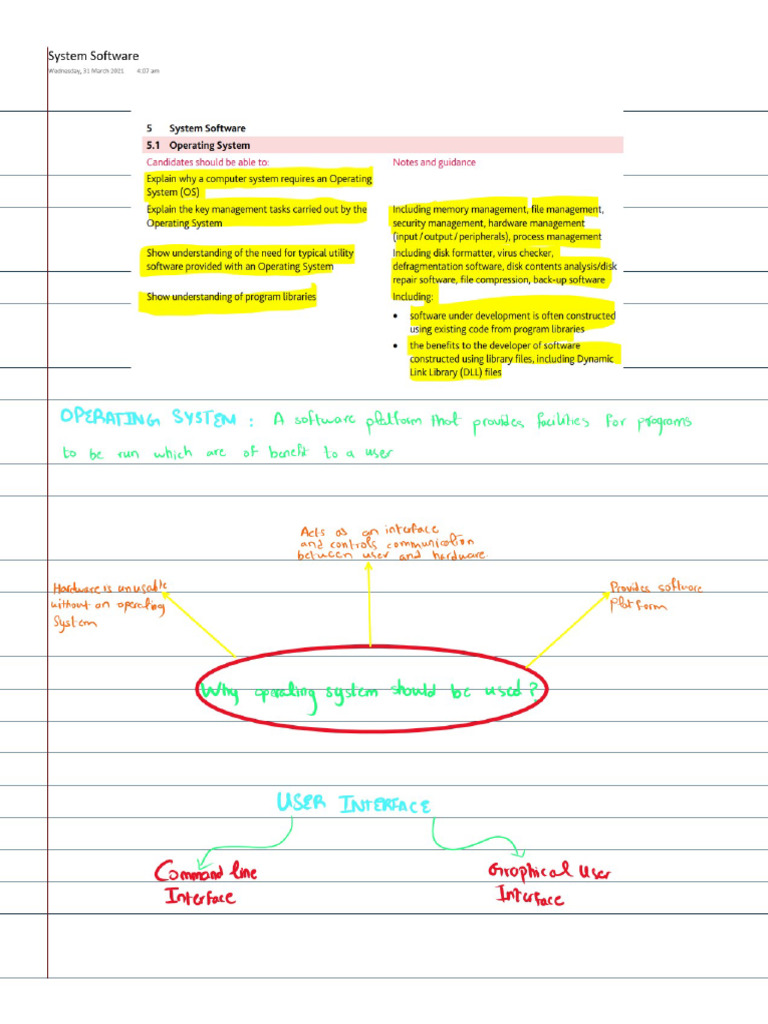 System Software
Wednesday, 31 March 2021 4:07 am
5 System Software
5.1 Operating System
Candidates should be able to:
Notes and guidance
Explain why a computer system requires an Operating
System (OS)
Explain the key management tasks carried out by the
Operating System
Including memory management, file management,
security management, hardware management
(input / output / peripherals), process management
Show understanding of the need for typical utility
software provided with an Operating System
Including disk formatter, virus checker,
defragmentation software, disk contents analysis/disk
repair software, file compression, back-up software
Show understanding of program libraries
Including:
• software under development is often constructed
using existing code from program libraries
• the benefits to the developer of software
constructed using library files, including Dynamic
Link Library (DLL) files
OPERATING SYSTEM : A software platform that provides facilities for programs
to be run which are of benefit to a user
Acts as an interface
and controls communication
between user and hardware
Hardware is unusable
without an operating
System
Provides software
Platform
Why operating system should be used?
USER INTERFACE
Command line
Interface
Graphical User
Interface